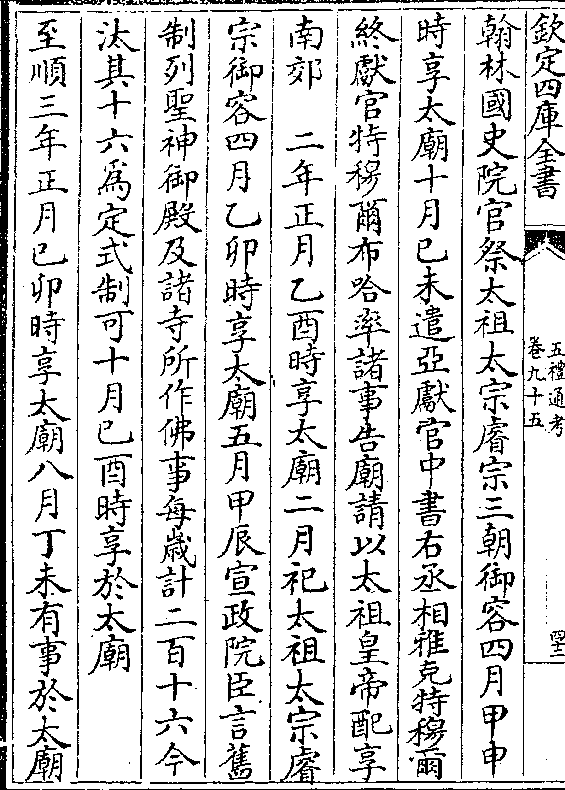 欽定四庫全書
五禮通考
卷九十五
四十二
翰林國史院官祭太祖太宗睿宗三朝御容四月甲申
時享太廟十月已未遣亞獻官中書右丞相雅克特穆爾
終獻官特穆爾布哈率諸事告廟請以太祖皇帝配享
南郊 二年正月乙酉時享太廟二月祀太祖太宗睿
宗御容四月乙卯時享太廟五月甲辰宣政院臣言舊
制列聖神御殿及諸寺所作佛事每歲計二百十六今
汰其十六為定式制可十月已酉時享於太廟
至順三年正月已卯時享太廟八月丁未有事於太廟